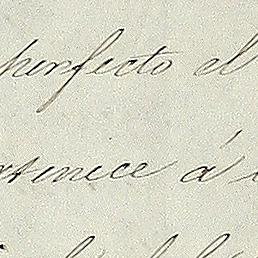 perfecto el
rtenece á